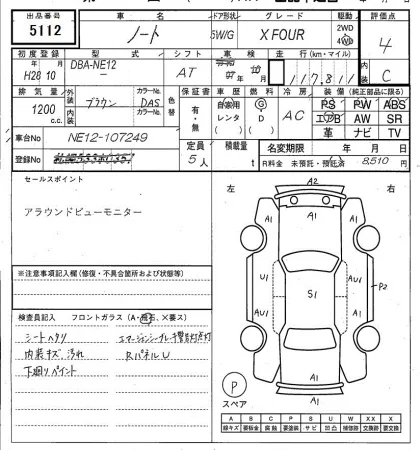 出品番号 車名 ドア形状 グレード 駆動 評価点
5112 ノート 5W/G X FOUR 2WD 4WD 4
初度登録 型式 シフト 車検 走行(km・マイル) 内装
H28 10 DBA-NE12 AT 117,811 C
排気量 外装 カラーNo. 色替 保証書 車歴 燃料 冷房 装備(純正部品に限る)
1200 c.c. ブラウン DAS 有・無 自家用 レンタ G D AC PS PW ABS
エアB AW SR
内装 カラーNo. 革 ナビ TV
車台No NE12-107249 定員 積載量 名変期限 年 月 日
登録No 5人 t R料金 未預託・預託済 8,510 円
セールスポイント
アラウンドビューモニター
※注意事項記入欄(修復・不具合箇所および状態等)
検査員記入 フロントガラス(A・飛石、×要ス)
シートヘタリ エマージェンシーブレーキ警告灯点灯
内装キズ汚れ RパネルU
下廻りペイント
左 右
A2
A1 A1 A1
U1 AU1 S1 A1 AU1 P2
A1 A1 A1
A1
P
スペア
A B C P S U W X XX
線キズ 要板金 腐蝕 要塗装 サビ 凹凸 補修跡 要交換 交換済